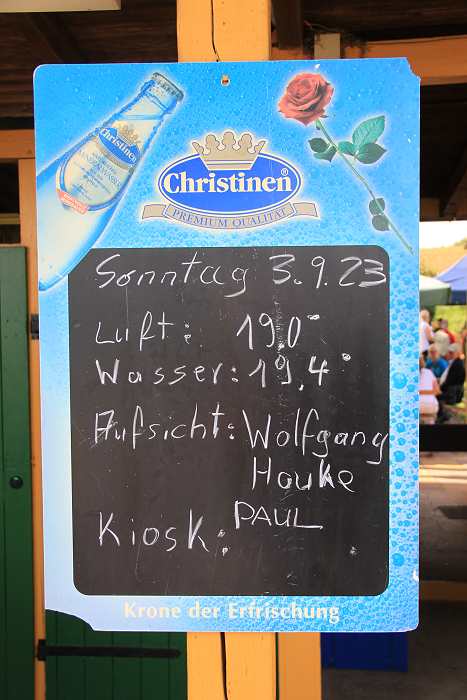 Christinen
Christinen®
PREMIUM QUALITÄT
Sonntag 3.9.23
Luft: 19,0°
Wasser: 19,4°
Aufsicht: Wolfgang
Hauke
PAUL
Kiosk:
Krone der Erfrischung